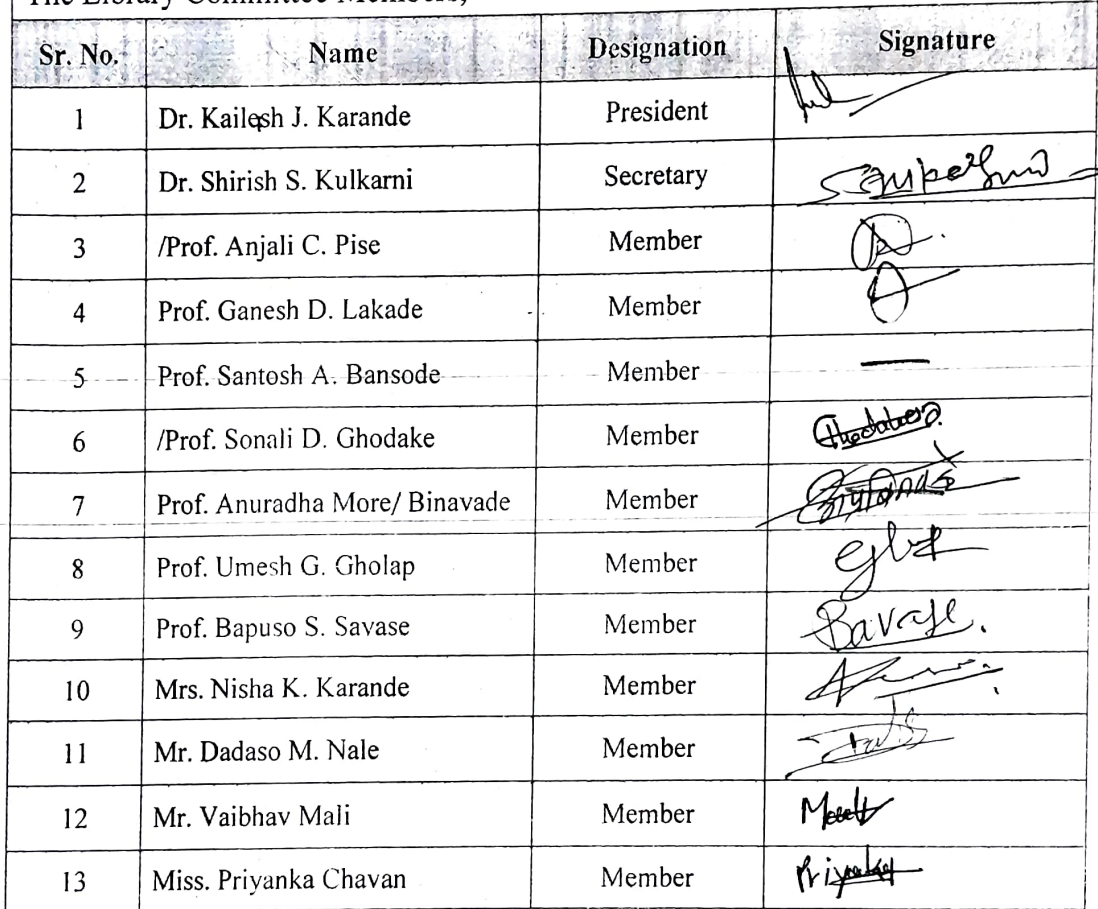 The Library Committee Members,
Sr. No. Name Designation Signature
1 Dr. Kailesh J. Karande President
2 Dr. Shirish S. Kulkarni Secretary
3 /Prof. Anjali C. Pise Member
4 Prof. Ganesh D. Lakade Member
5 Prof. Santosh A. Bansode Member —
6 /Prof. Sonali D. Ghodake Member
7 Prof. Anuradha More/ Binavade Member
8 Prof. Umesh G. Gholap Member
9 Prof. Bapuso S. Savase Member Savase.
10 Mrs. Nisha K. Karande Member
11 Mr. Dadaso M. Nale Member
12 Mr. Vaibhav Mali Member
13 Miss. Priyanka Chavan Member